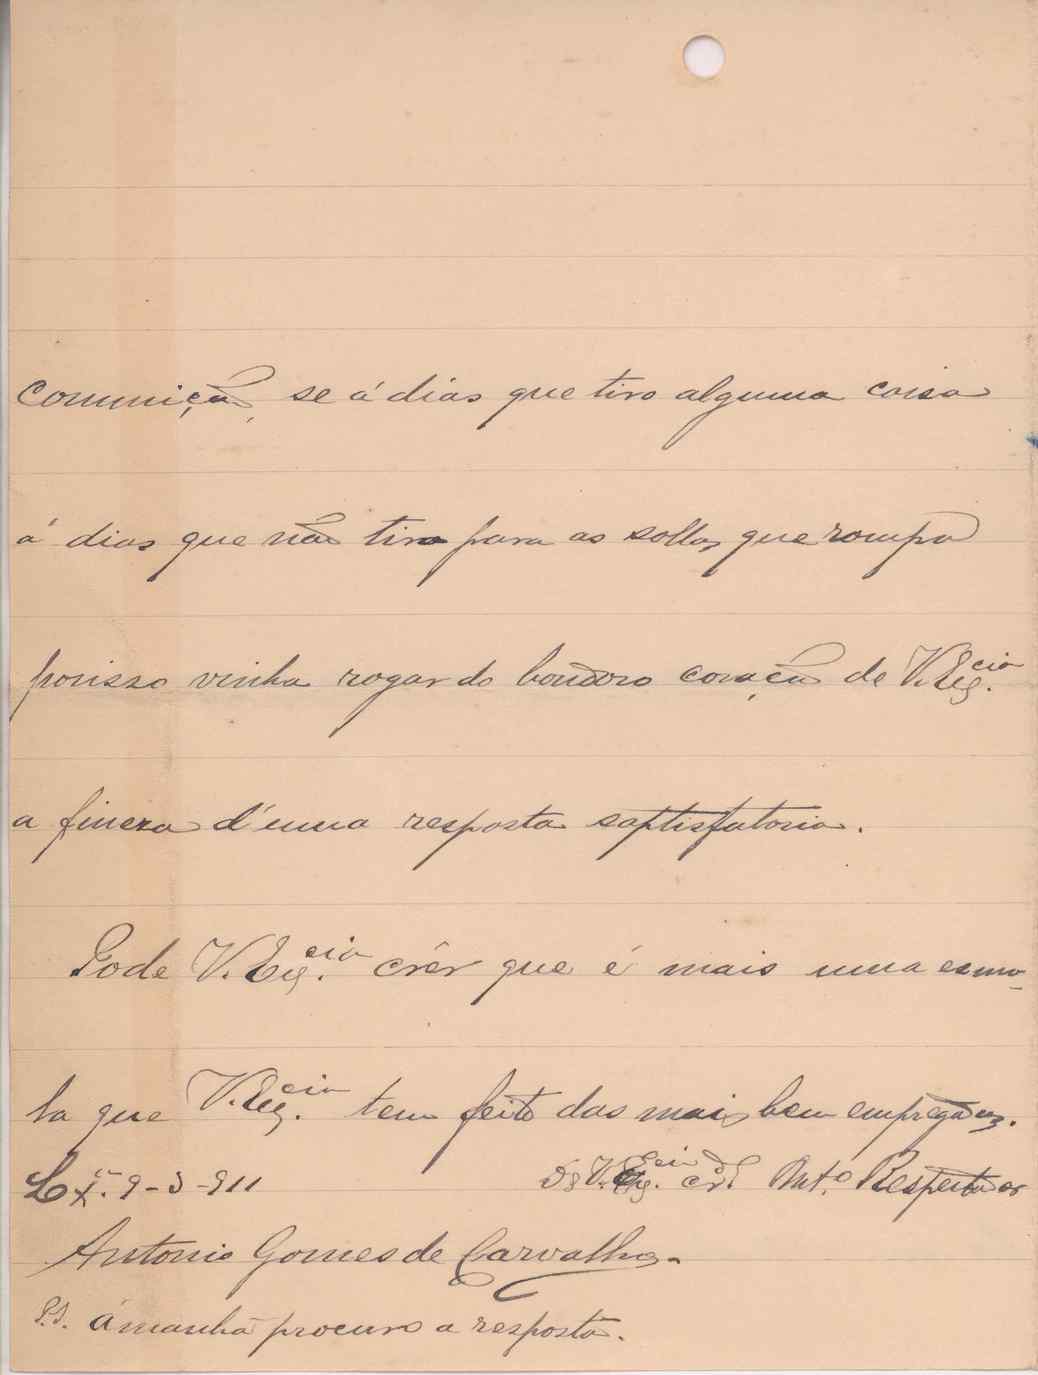 comuniçaõ, se á dias que tiro alguma coisa
á dias que não tiro para as sollas que rompo
porisso vinha rogar do bondoso coraçaõ de V. Exª.cia
a fineza d'uma resposta saptisfatoria.
Pode V. Ex.cia crêr que é mais uma esmo-
la que V. Ex.cia tem feito das mais bem empregadas.
Lx.ª 9-3-911 De V. Ex.cia Mt.º Respeitador
Antonio Gomes de Carvalho.
P.S. ámanhã procuro a resposta.